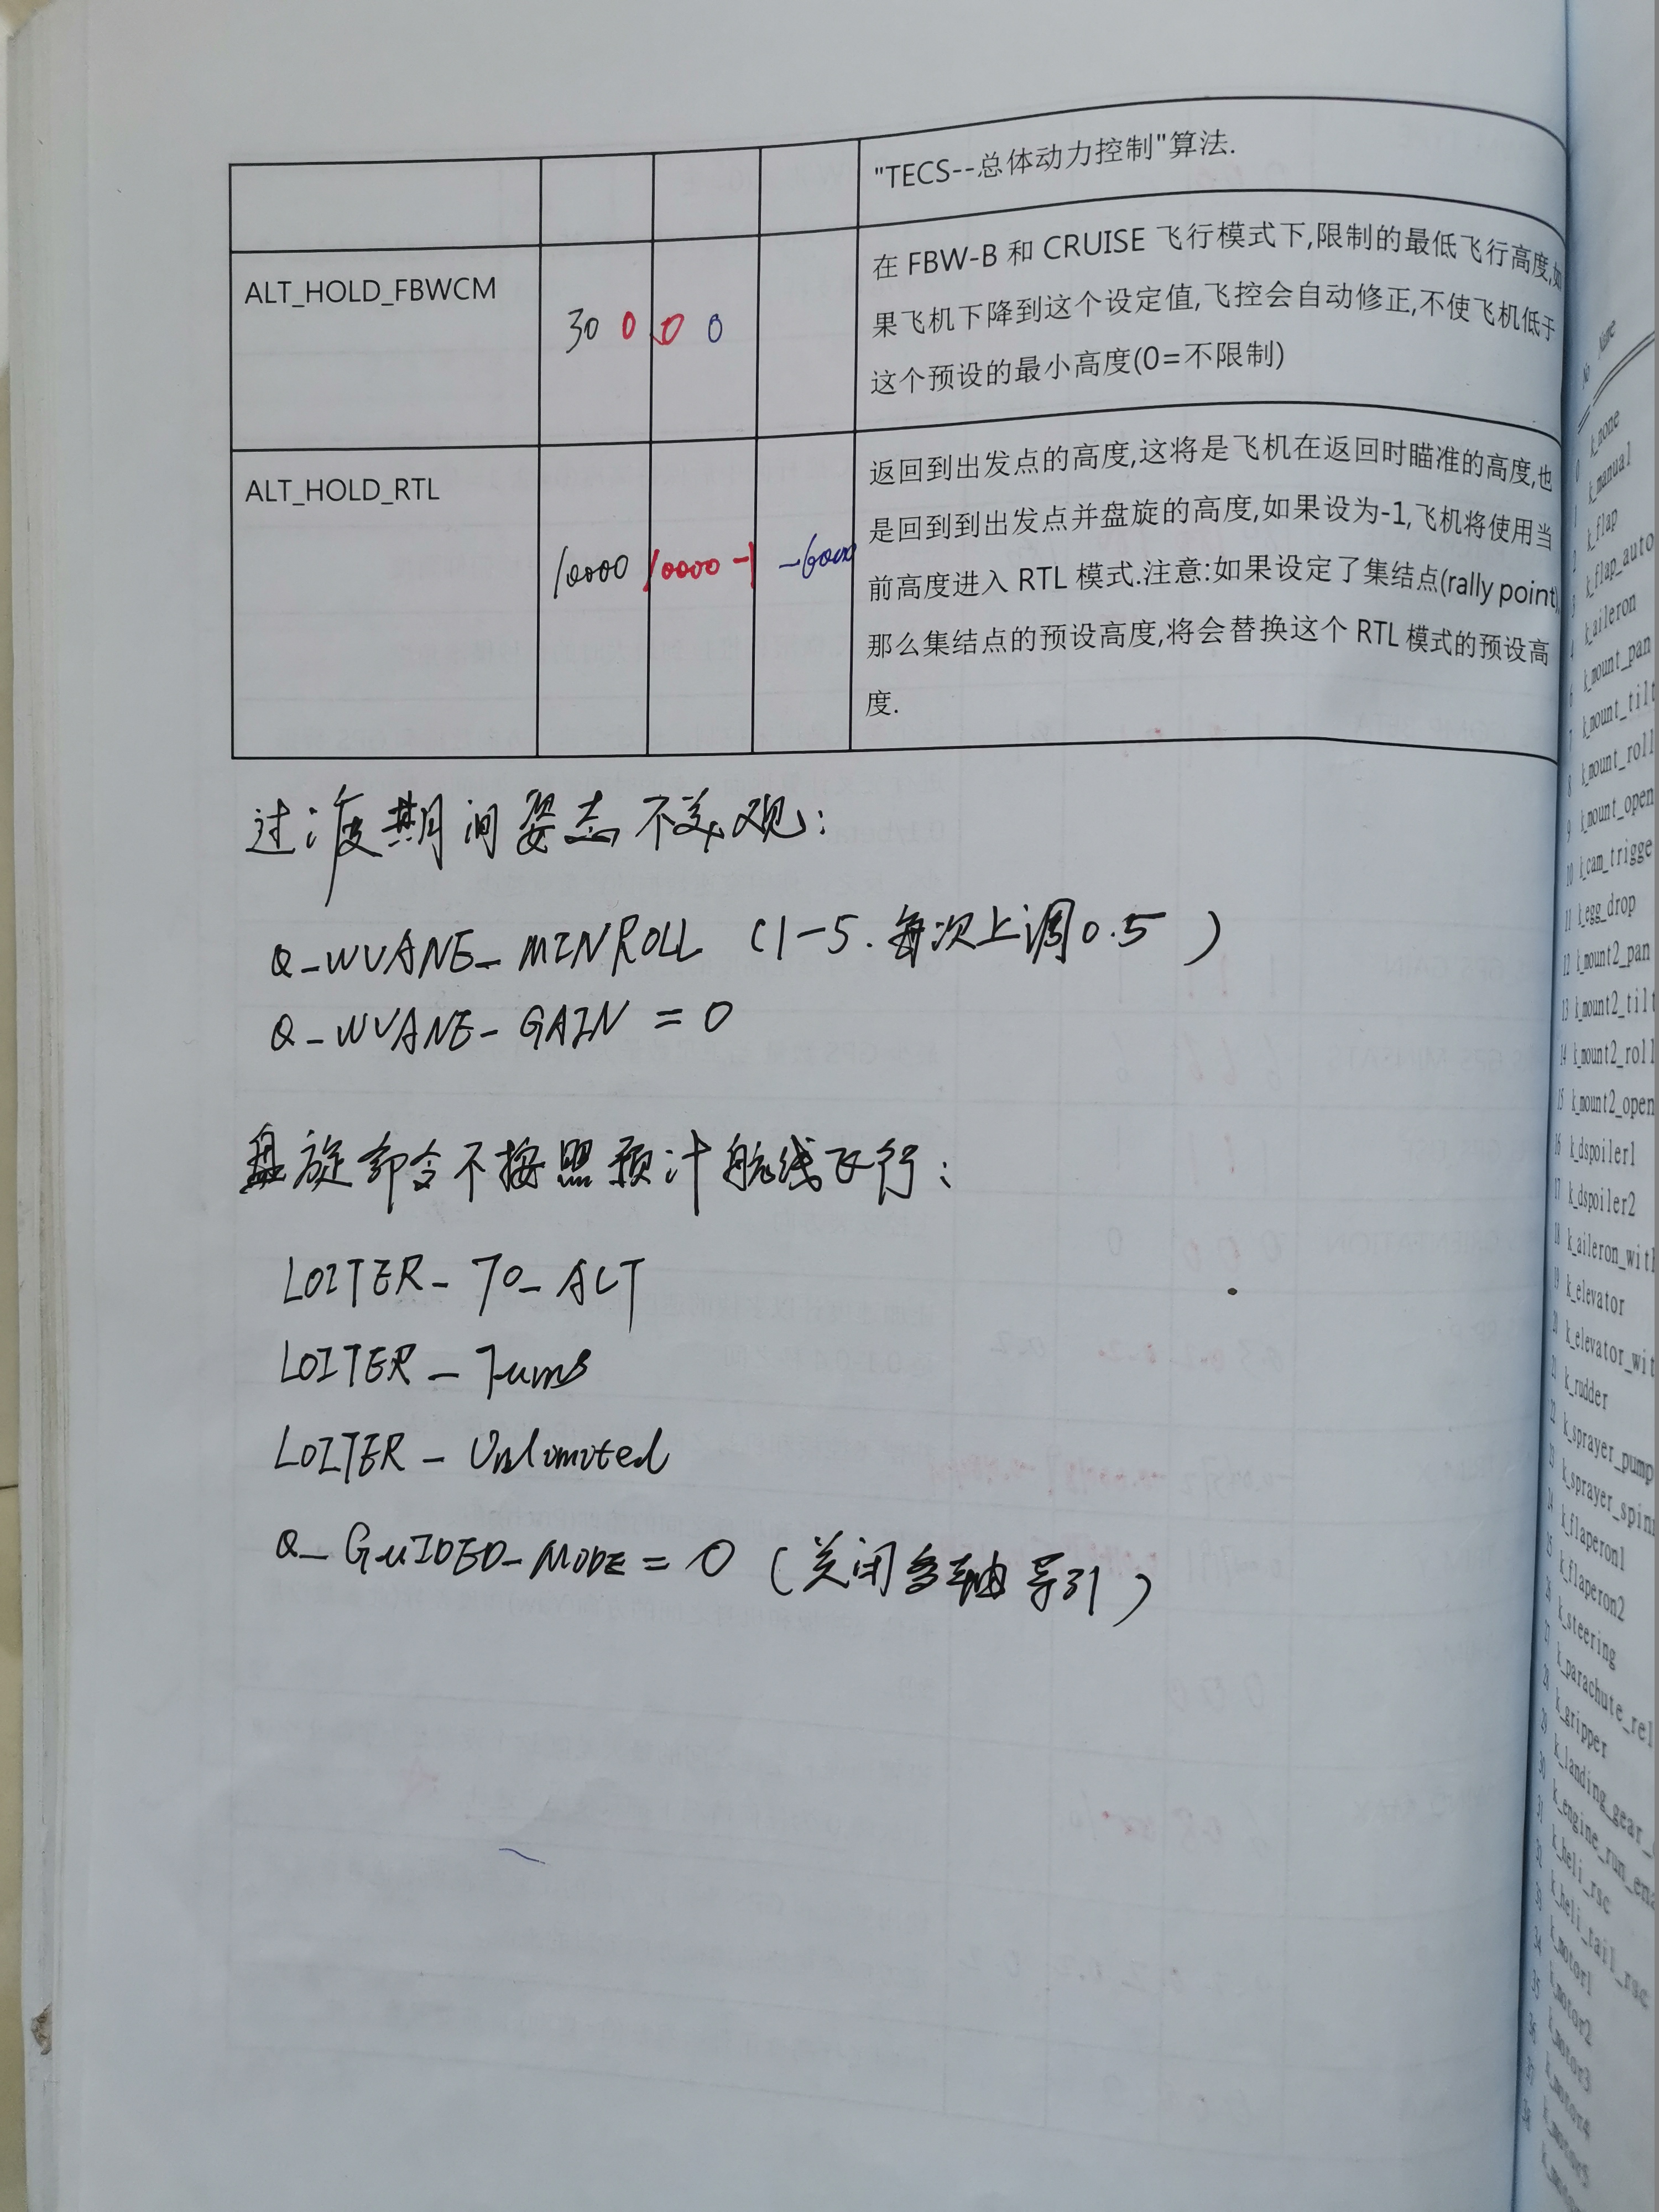 "TECS--总体动力控制"算法.
ALT_HOLD_FBWCM
30 0 0 0
在 FBW-B 和 CRUISE 飞行模式下,限制的最低飞行高度,如
果飞机下降到这个设定值,飞控会自动修正,不使飞机低于
这个预设的最小高度(0=不限制)
ALT_HOLD_RTL
10000 10000 -1 -6000
返回到出发点的高度,这将是飞机在返回时瞄准的高度,也
是回到到出发点并盘旋的高度,如果设为-1,飞机将使用当
前高度进入 RTL 模式.注意:如果设定了集结点(rally point),
那么集结点的预设高度,将会替换这个 RTL 模式的预设高
度.
过渡期间姿态不美观:
Q_WVANE_MINROLL (1-5.每次上调0.5 )
Q_WVANE_GAIN = 0
盘旋命令不按照预计航线飞行:
LOITER_TO_ALT
LOITER_Turns
LOITER_Unlimited
Q_GuIDED_MODE = 0 (关闭多轴导引)
No Name
0 k_none
1 k_manual
2 k_flap
3 k_flap_auto
4 k_aileron
6 k_mount_pan
7 k_mount_tilt
8 k_mount_roll
9 k_mount_open
10 k_cam_trigge
11 k_egg_drop
12 k_mount2_pan
13 k_mount2_tilt
14 k_mount2_roll
15 k_mount2_open
16 k_dspoiler1
17 k_dspoiler2
18 k_aileron_with
19 k_elevator
20 k_elevator_wit
21 k_rudder
22 k_sprayer_pump
23 k_sprayer_spin
24 k_flaperon1
25 k_flaperon2
26 k_steering
27 k_parachute_rel
28 k_gripper
29 k_landing_gear
30 k_engine_run_ena
31 k_heli_rsc
32 k_heli_tail_rsc
33 k_motor1
34 k_motor2
35 k_motor3
36 k_motor4
37 k_motor5
38